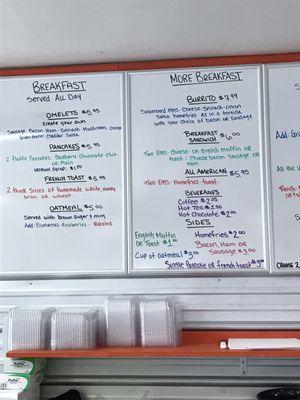 BREAKFAST
Served All Day
OMELETS $5.95
Create your own
Sausage · Bacon · Ham · Spinach · Mushroom · Onion
Cheddar Salsa
PANCAKES $5.95
2 Fluffy Pancakes: Blueberry Chocolate Chip
or Plain
FRENCH TOAST $5.95
2 Thick Slices of homemade white, honey
bran or wheat.
OATMEAL $5.00
Served with Brown Sugar
Add: Blueberries · Raisins
MORE BREAKFAST
BURRITO $7.99
Scrambled eggs · Cheese · Spinach · Onion
Salsa · homefries · As in a tortilla
with your choice of bacon or Sausage
BREAKFAST
SANDWICH $6.00
Two Eggs · Cheese on English muffin or
toast · Choose bacon sausage or
Ham
ALL AMERICAN $5.95
Two Eggs homefries toast.
BEVERAGES
Coffee
Hot Tea $1.50
Hot Chocolate $2.00
SIDES
English Muffin
or Toast $1.00
Homefries $2.00
Bacon, Ham or
Sausage $3.00
Cup of oatmeal $3.00
Single Pancake or french toast
Add: